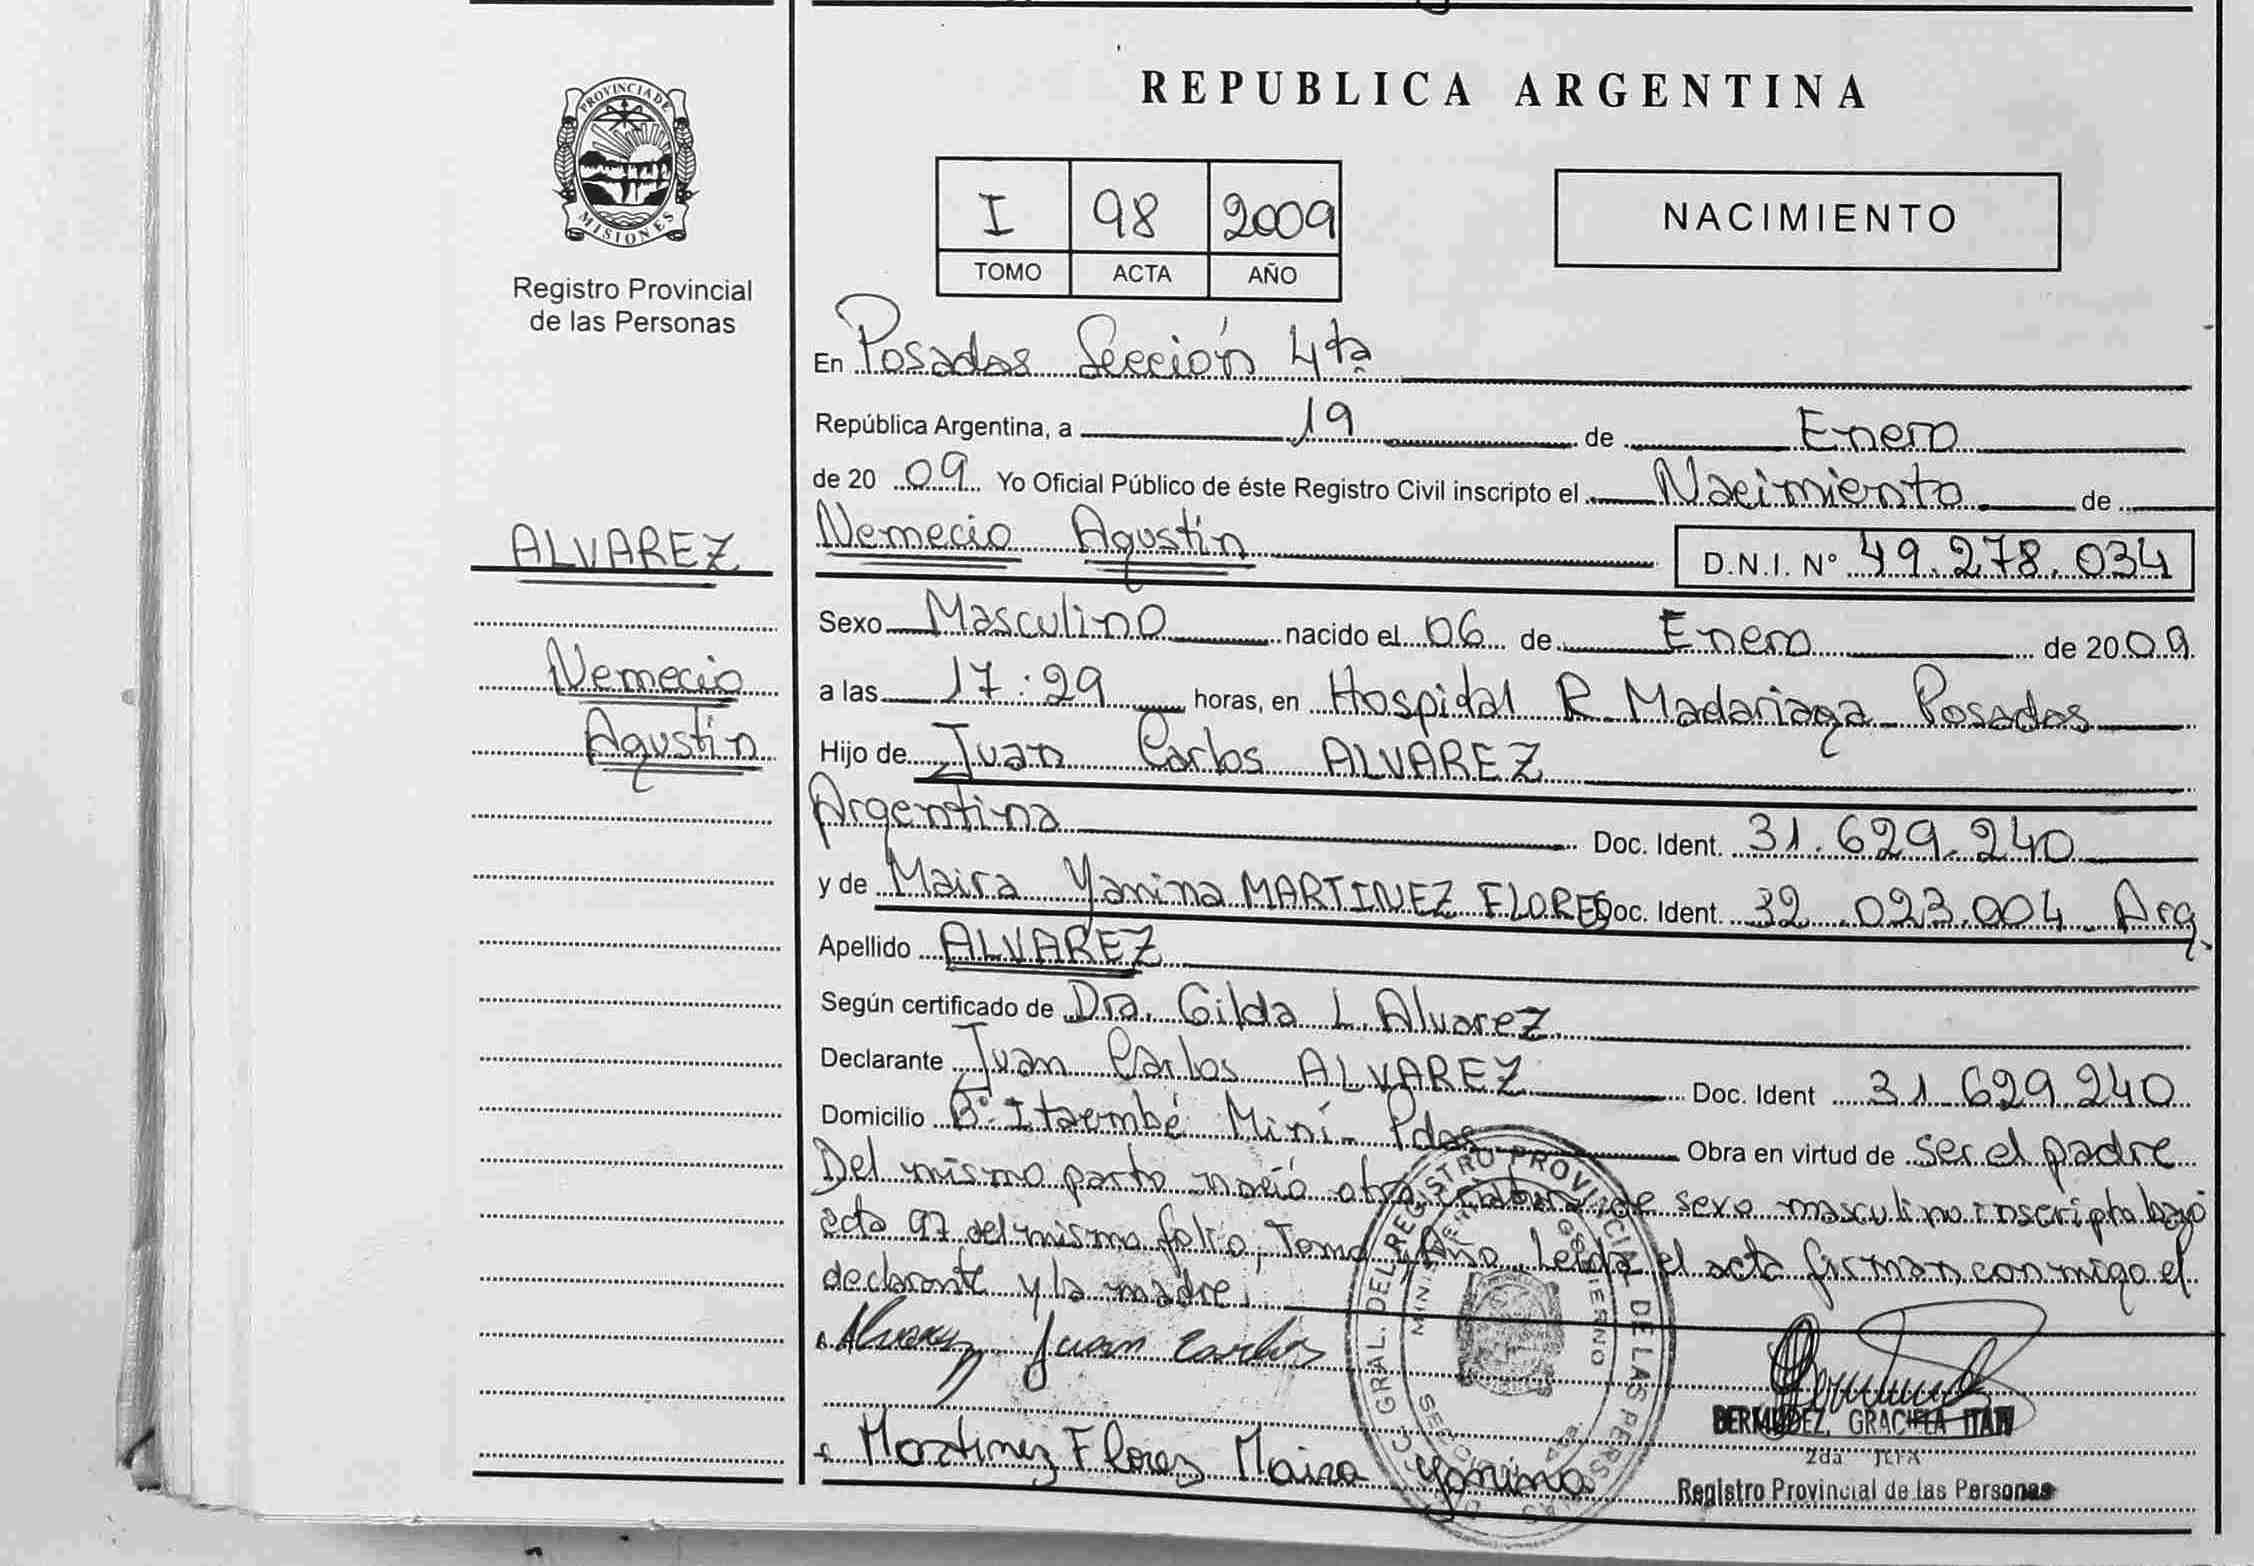 REPUBLICA ARGENTINA
PROVINCIA DE
MISIONES
Registro Provincial
de las Personas
I 98 2009
TOMO ACTA AÑO
NACIMIENTO
En Posadas Sección 4ta
República Argentina, a 19 de Enero
de 2009 Yo Oficial Público de éste Registro Civil inscripto el Nacimiento de
ALVAREZ
Nemecio
Agustín
Nemecio Agustín D.N.I. N° 49.278.034
Sexo Masculino nacido el 06 de Enero de 2009
a las 17:29 horas, en Hospital R. Madariaga Posadas
Hijo de Juan Carlos ALVAREZ
Argentina Doc. Ident. 31.629.240
y de Maira Yanina MARTINEZ FLORES Doc. Ident. 32.023.004 Arg.
Apellido ALVAREZ
Según certificado de Dra. Gilda L. Alvarez
Declarante Juan Carlos ALVAREZ Doc. Ident 31.629.240
Domicilio B° Itaembé Miní - Pdas Obra en virtud de ser el padre
Del mismo parto nació otra de sexo masculino inscripto bajo
acta 97 del mismo folio, Tomo y Año. Leida el acta firman conmigo el
declarante y la madre.
Alvarez Juan Carlos
Martinez Florez Maira Yanina
BERMUDEZ, GRACIELA ITATI
2da JEFA
Registro Provincial de las Personas
GRAL. DEL REGISTRO PROVINCIAL DE LAS PERSONAS